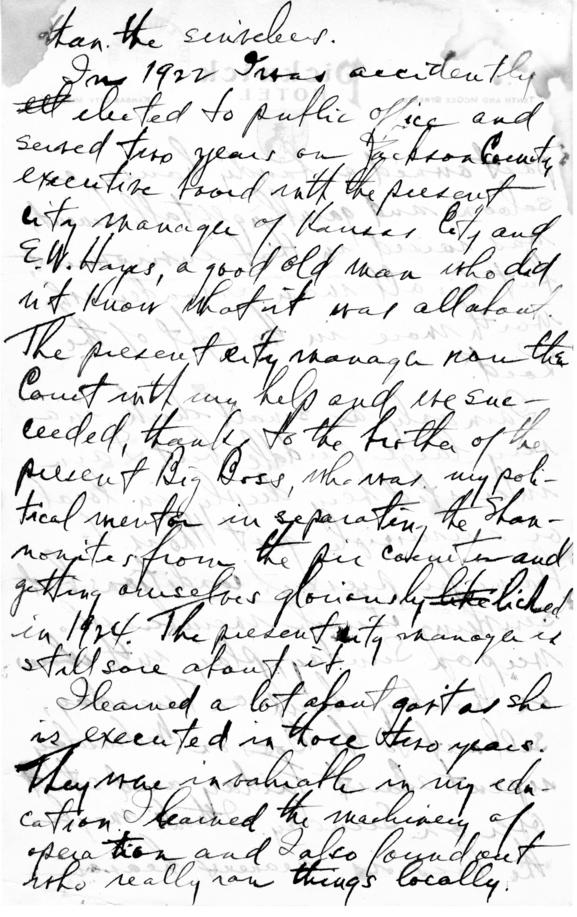 than the sinrbers.
In 1922 I was accidently
elected to public office and
served two years on Jackson County
executive board with the present
city manager of Kansas City and
E.W. Hayes, a good old man who did
n't know what it was all about.
The present city manager ran the
Court with my help and we suc-
ceeded, thanks to the brother of the
present Big Boss, who was my poli-
tical mentor in separating the Shan-
nonites from the pie counter and
getting ourselves gloriously licked
in 1924. The present city manager is
still sore about it.
I learned a lot about gov't as she
is executed in those two years.
They were invaluable in my edu-
cation. I learned the machinery of
operation and I also found out
who really ran things locally.